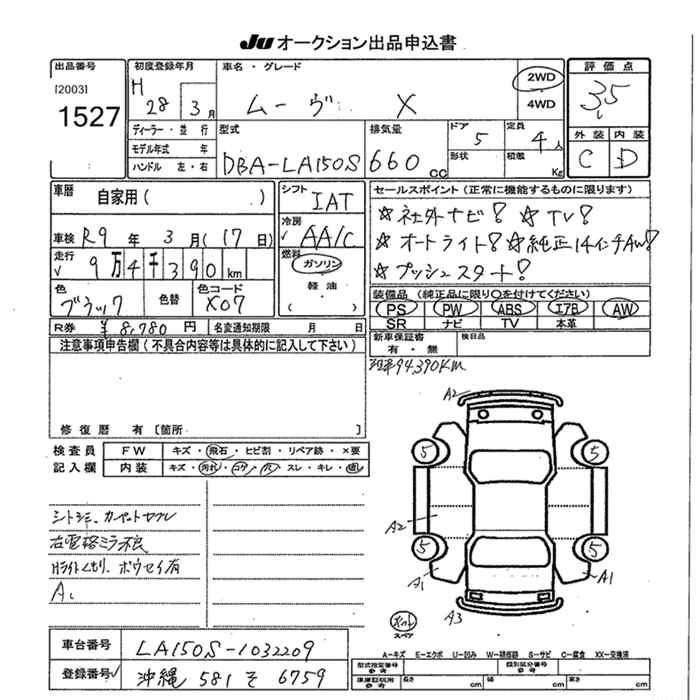 JU オークション出品申込書
出品番号
[2003]
1527
初度登録年月
H 28 3月
車名・グレード
ムーヴ X
2WD
4WD
評価点
3.5
外装 内装
C D
ディーラー・並行
モデル年式 年
ハンドル 左・右
型式
DBA-LA150S
排気量
660 cc
ドア
5
形状
定員
4人
積載
Kg
車歴
自家用( )
車検 R9年 3月(17日)
走行
√ 9万4千390km
色
ブラック
色替
色コード
X07
R券 ¥8,780円
名変通知期限 月 日
シフト
IAT
冷房
√ AA/C
燃料
√ ガソリン
軽油
( )
セールスポイント(正常に機能するものに限ります)
☆社外ナビ! ☆TV!
☆オートライト! ☆純正14インチAW!
☆プッシュスタート!
装備品(純正品に限り○を付けてください)
PS PW ABS エアB AW
SR ナビ TV 本革
新車保証書
有・無
検目品
94,390KM
注意事項申告欄(不具合内容等は具体的に記入して下さい)
修復歴 有[箇所 ]
検査員
記入欄
FW キズ・飛石・ヒビ割・リペア跡・×要
内装 キズ・汚れ・コゲ・穴・スレ・キレ・
シトシミ、カーペットヨゴレ
右電格ミラ不良
Hライトくもり、ボウセイ有
A2
5 5
A2
5 5
A1 A1
A3
スペア
A-キズ E-エクボ U-凹み W-補修跡 S-サビ C-腐食 XX-交換済
車台番号 LA150S-1032209
登録番号√ 沖縄 581 そ 6759
型式指定番号
参考
類別区分番号
参考
車庫証明用
参考
長さ cm
幅 cm
高さ cm